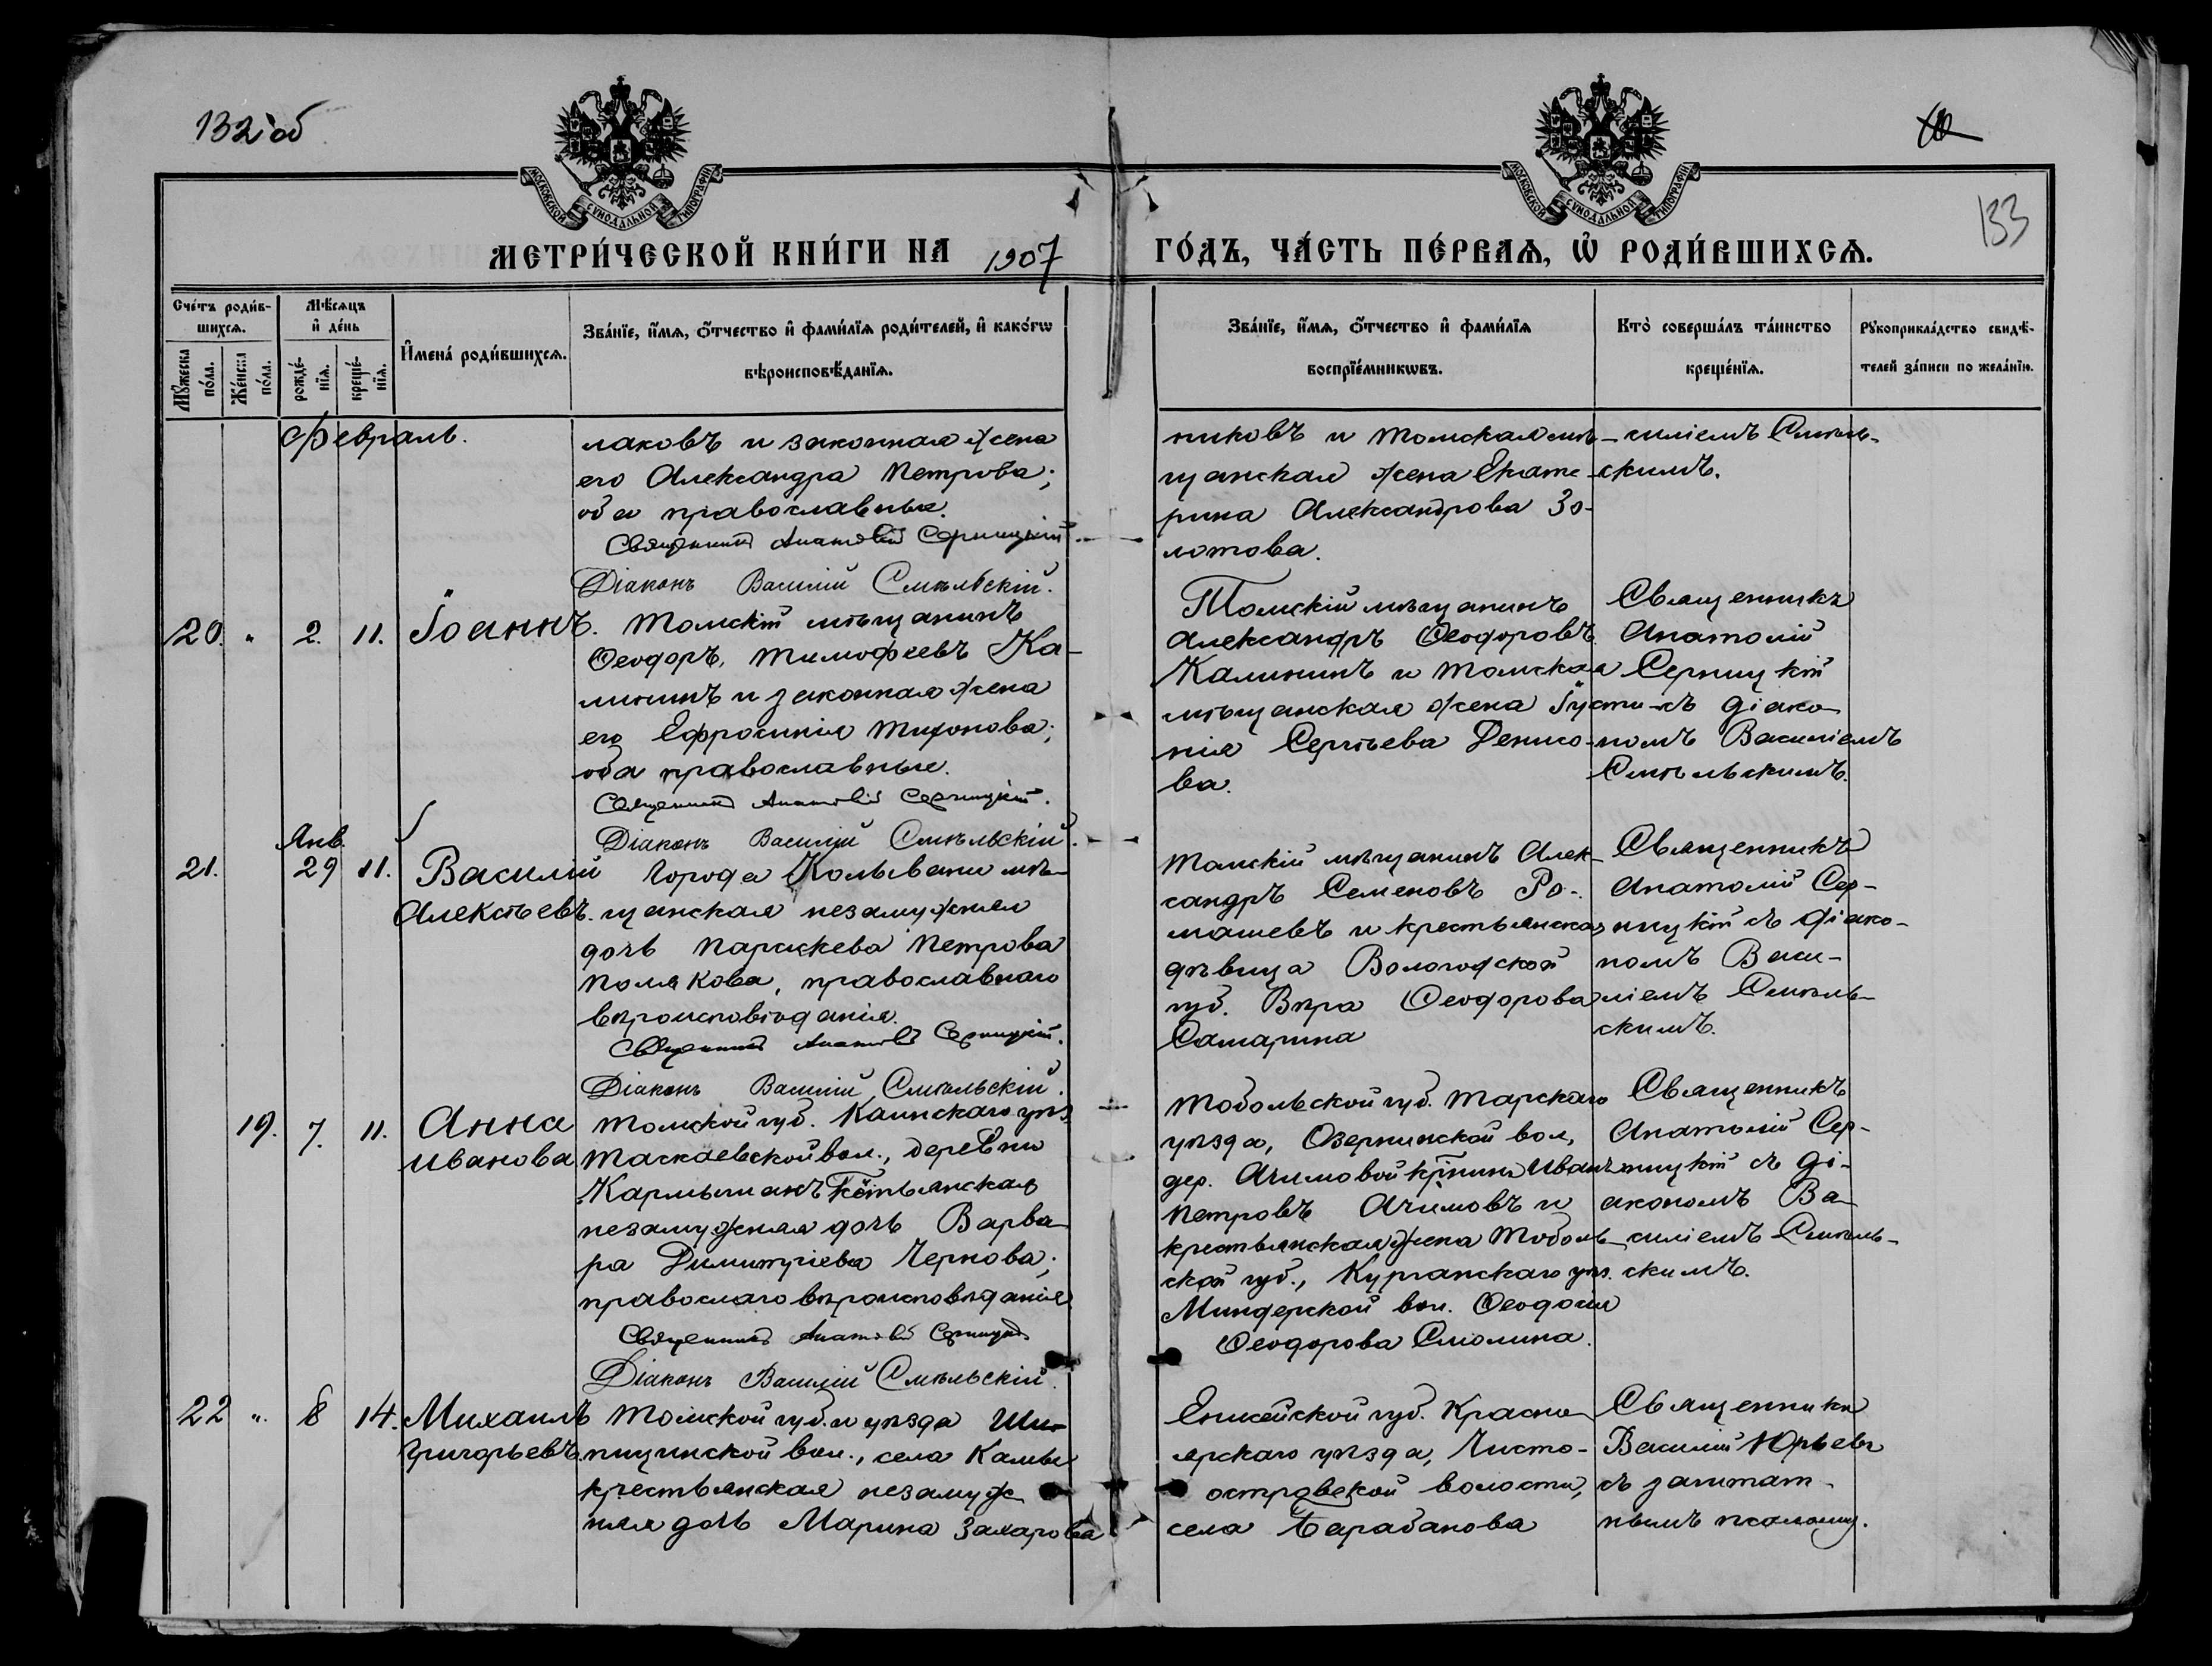 132 об
133
МОСКОВСКОЙ СѴНОДАЛЬНОЙ ТИПОГРАФІИ
МОСКОВСКОЙ СѴНОДАЛЬНОЙ ТИПОГРАФІИ
МЕТРИ́ЧЕСКОЙ КНИ́ГИ НА 1907 ГО́ДЪ, ЧА́СТЬ ПЕ́РВАѦ, Ѡ҆ РОДИ́ВШИХСѦ.
Сче́тъ роди́в-
шихсѧ.
Мꙋ́жеска по́ла.
Же́нска по́ла.
Мѣ́сѧцъ
и҆ де́нь
рожде́-
нїѧ.
креще́-
нїѧ.
И҆мена̀ роди́вшихсѧ.
Зва́нїе, и҆́мѧ, ѻ҆́тчество и҆ фами́лїѧ роди́телей, и҆ како́гѡ
вѣроисповѣ́данїѧ.
Зва́нїе, и҆́мѧ, ѻ҆́тчество и҆ фами́лїѧ
воспрїе́мникѡвъ.
Кто̀ соверша́лъ та́инство
креще́нїѧ.
Рꙋкоприкла́дство свидѣ́-
телей за́писи по жела́нїю.
Февраль.
лаковъ и законная жена
его Александра Петрова;
оба православные.
Священникъ Анатолій Серницкій
Діаконъ Василій Смѣльскій.
никовъ и томская мѣ-
щанская жена Екате-
рина Александрова Зо-
лотова.
силіемъ Смѣль-
скимъ.
20. " 2. 11. Іоаннъ.
Томскій мѣщанинъ
Ѳеодоръ Тимофеевъ Ка-
лининъ и законная жена
его Ефросинія Тихонова;
оба православные.
Священникъ Анатолій Серницкій.
Діаконъ Василій Смѣльскій.
Томскій мѣщанинъ
Александръ Ѳеодоровъ
Калининъ и томская
мѣщанская жена Іусти-
нія Сергѣева Денисо-
ва.
Священникъ
Анатолій
Серницкій
съ діако-
номъ Василіемъ
Смѣльскимъ.
Янв.
21. 29 11. Василій
Алексѣевъ.
Города Колывани мѣ-
щанская незамужняя
дочь Параскева Петрова
Полякова, православнаго
вѣроисповѣданія.
Священникъ Анатолій Серницкій.
Діаконъ Василій Смѣльскій.
Томскій мѣщанинъ Алек-
сандръ Семеновъ Ро-
машевъ и крестьянская
дѣвица Вологодской
губ. Вѣра Ѳеодорова
Самарина
Священникъ
Анатолій Сер-
ницкій съ діако-
номъ Васи-
ліемъ Смѣль-
скимъ.
19. 7. 11. Анна
Иванова
Томской губ. Каинскаго уѣз.
Таскаевской вол., деревни
Кармышакъ кр̃стьянская
незамужняя дочь Варва-
ра Димитріева Чернова;
православнаго вѣроисповѣданія
Священникъ Анатолій Серницкій
Діаконъ Василій Смѣльскій.
Тобольской губ. Тарскаго
уѣзда, Озернинской вол,
дер. Ачимовой кр̃нинъ Иванъ
Петровъ Ачимовъ и
крестьянская жена Тоболь-
ской губ., Курганскаго уѣз.
Мендерской вол. Ѳеодосія
Ѳеодорова Смолина.
Священникъ
Анатолій Сер-
ницкій съ ді-
акономъ Ва-
силіемъ Смѣль-
скимъ.
22 ". 8 14. Михаилъ
Григорьевъ
Томской губ. и уѣзда Ши-
пицинской вол., села Камы
крестьянская незамуж-
няя дочь Марина Захарова
Енисейской губ. Красно-
ярскаго уѣзда, Чисто-
островской волости,
села Барабанова
Священникъ
Василій Юрьевъ
съ заштат-
нымъ псаломщ.